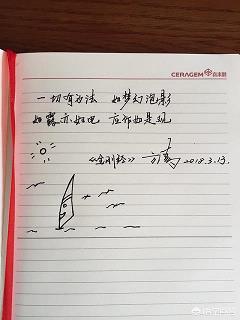 CERAGEM 喜来健
一切有为法 如梦幻泡影
如露亦如电 应作如是观
《金刚经》 2018.3.13.